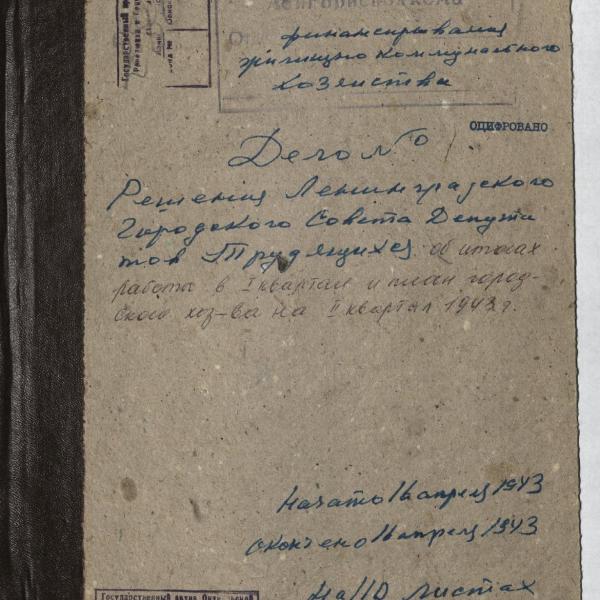 финансирования
жилищно коммунального
хозяйства
ОЦИФРОВАНО
Дело №
Решения Ленинградского
Городского Совета Депута
тов Трудящихся об итогах
работы в I квартале и план город-
ского хоз-ва на II квартал 1943 г.
Начато 16 апреля 1943
окончено 16 апреля 1943
На 110 листах
Государственный архив